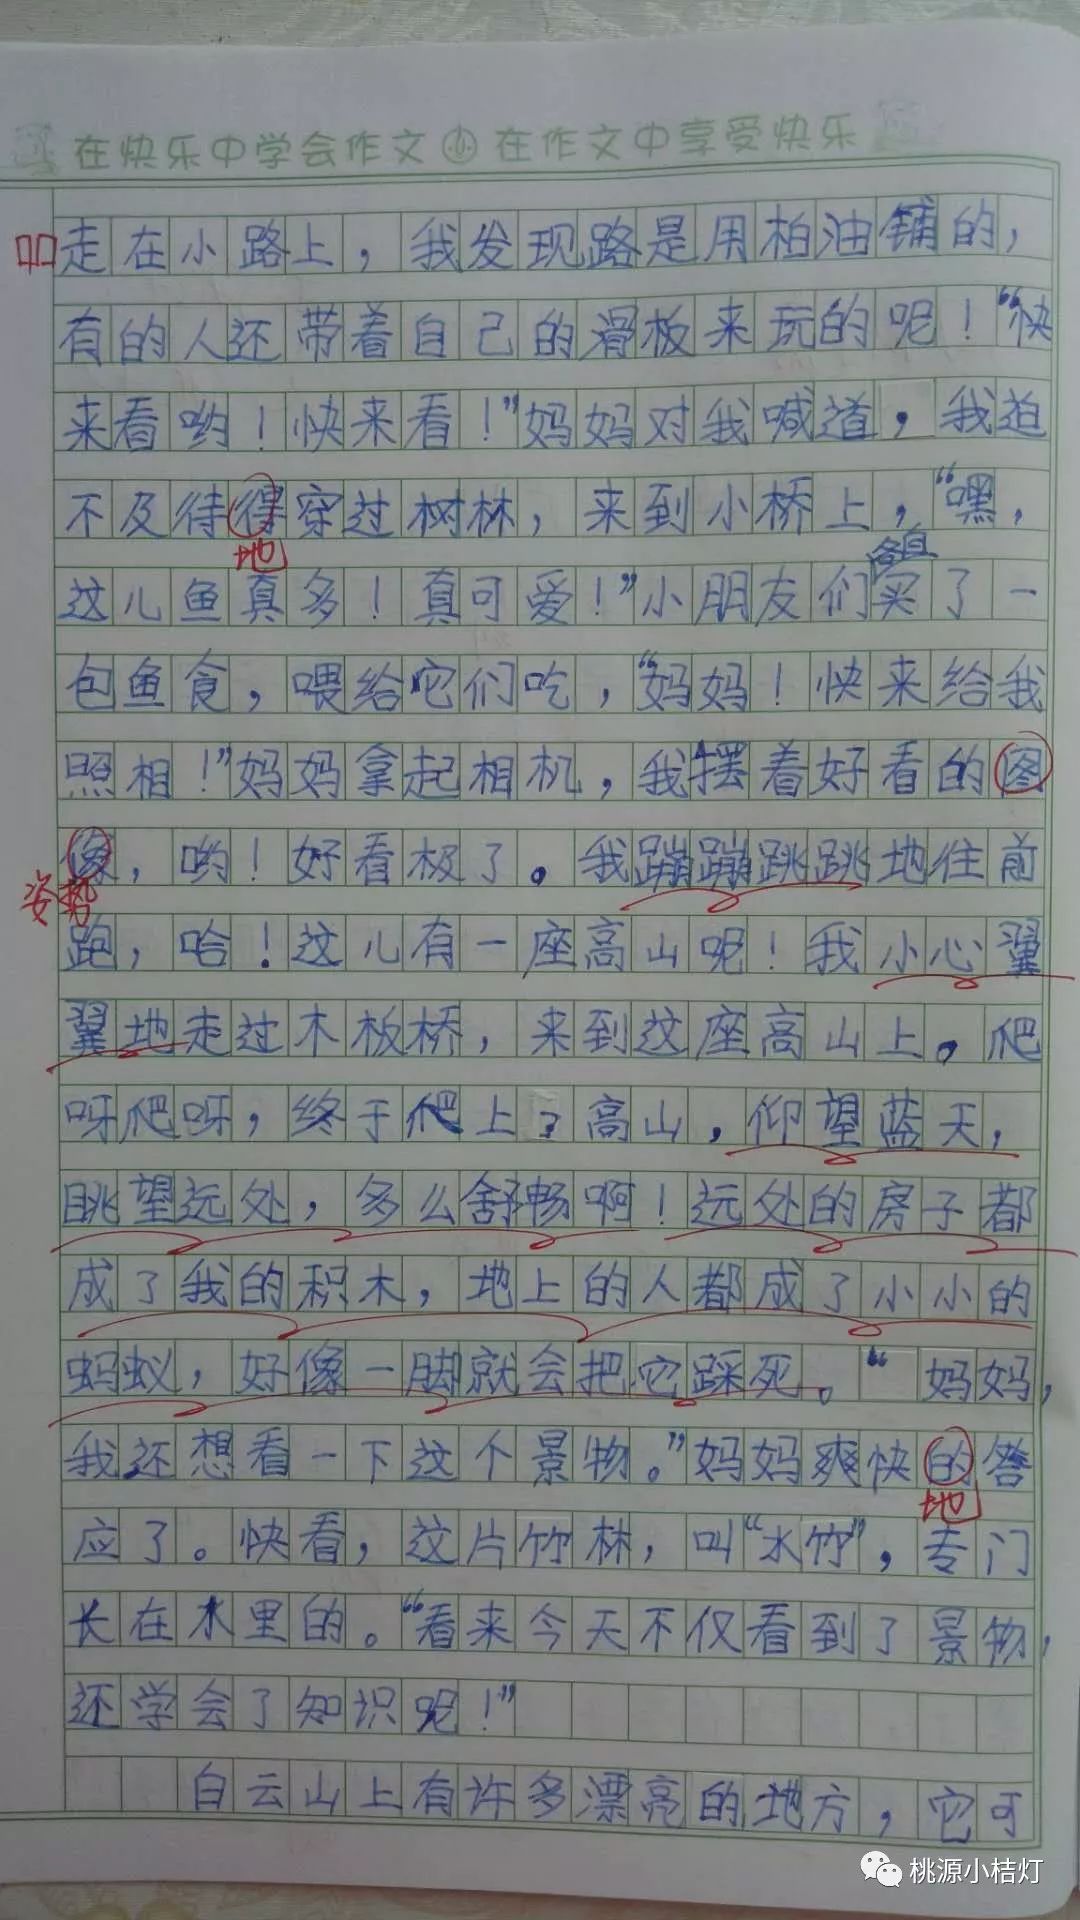 在快乐中学会作文 在作文中享受快乐
走在小路上，我发现路是用柏油铺的，
有的人还带着自己的滑板来玩的呢！“快
来看哟！快来看！”妈妈对我喊道，我迫
不及待得穿过树林，来到小桥上，“嘿，
地
各自
这儿鱼真多！真可爱！”小朋友们买了一
包鱼食，喂给它们吃，“妈妈！快来给我
照相！”妈妈拿起相机，我摆着好看的图
像，哟！好看极了。我蹦蹦跳跳地往前
姿势
跑，哈！这儿有一座高山呢！我小心翼
翼地走过木板桥，来到这座高山上。爬
呀爬呀，终于爬上了高山，仰望蓝天，
眺望远处，多么舒畅啊！远处的房子都
成了我的积木，地上的人都成了小小的
蚂蚁，好像一脚就会把它踩死。“妈妈，
我还想看一下这个景物。”妈妈爽快的答
地
应了。快看，这片竹林，叫“水竹”，专门
长在水里的。“看来今天不仅看到了景物，
还学会了知识呢！”
白云山上有许多漂亮的地方，它可
桃源小桔灯